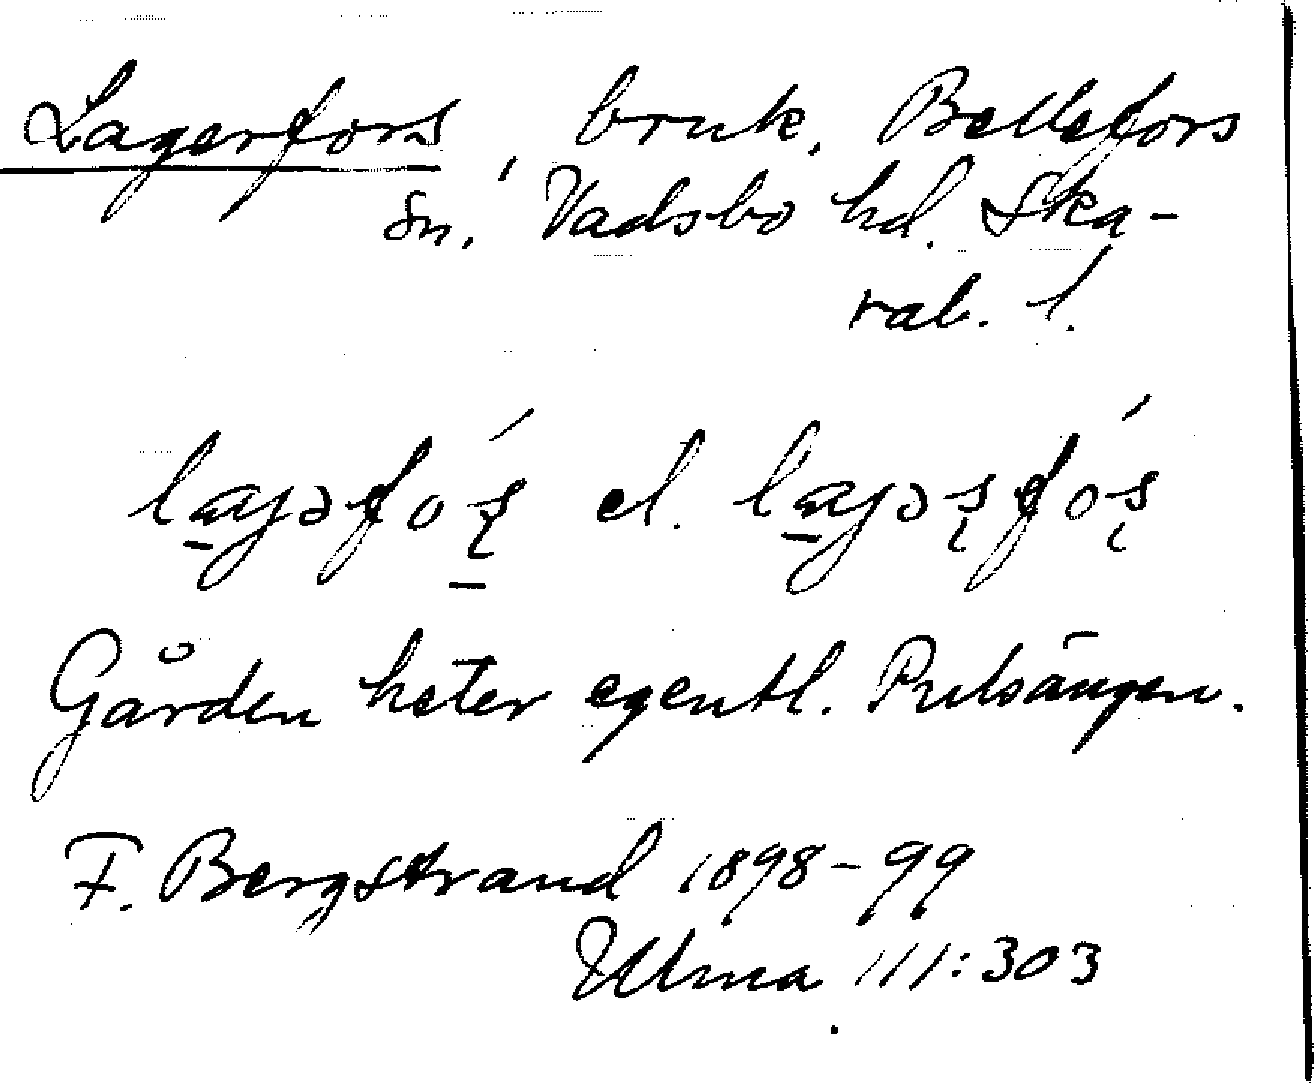 Lagerfors, bruk, Bellefors
sn, Vadsbo hd. Ska-
rab. l.
el.
Gården heter egentl. Pulsängen.
F. Bergstrand 1898-99
Ulma 111:303